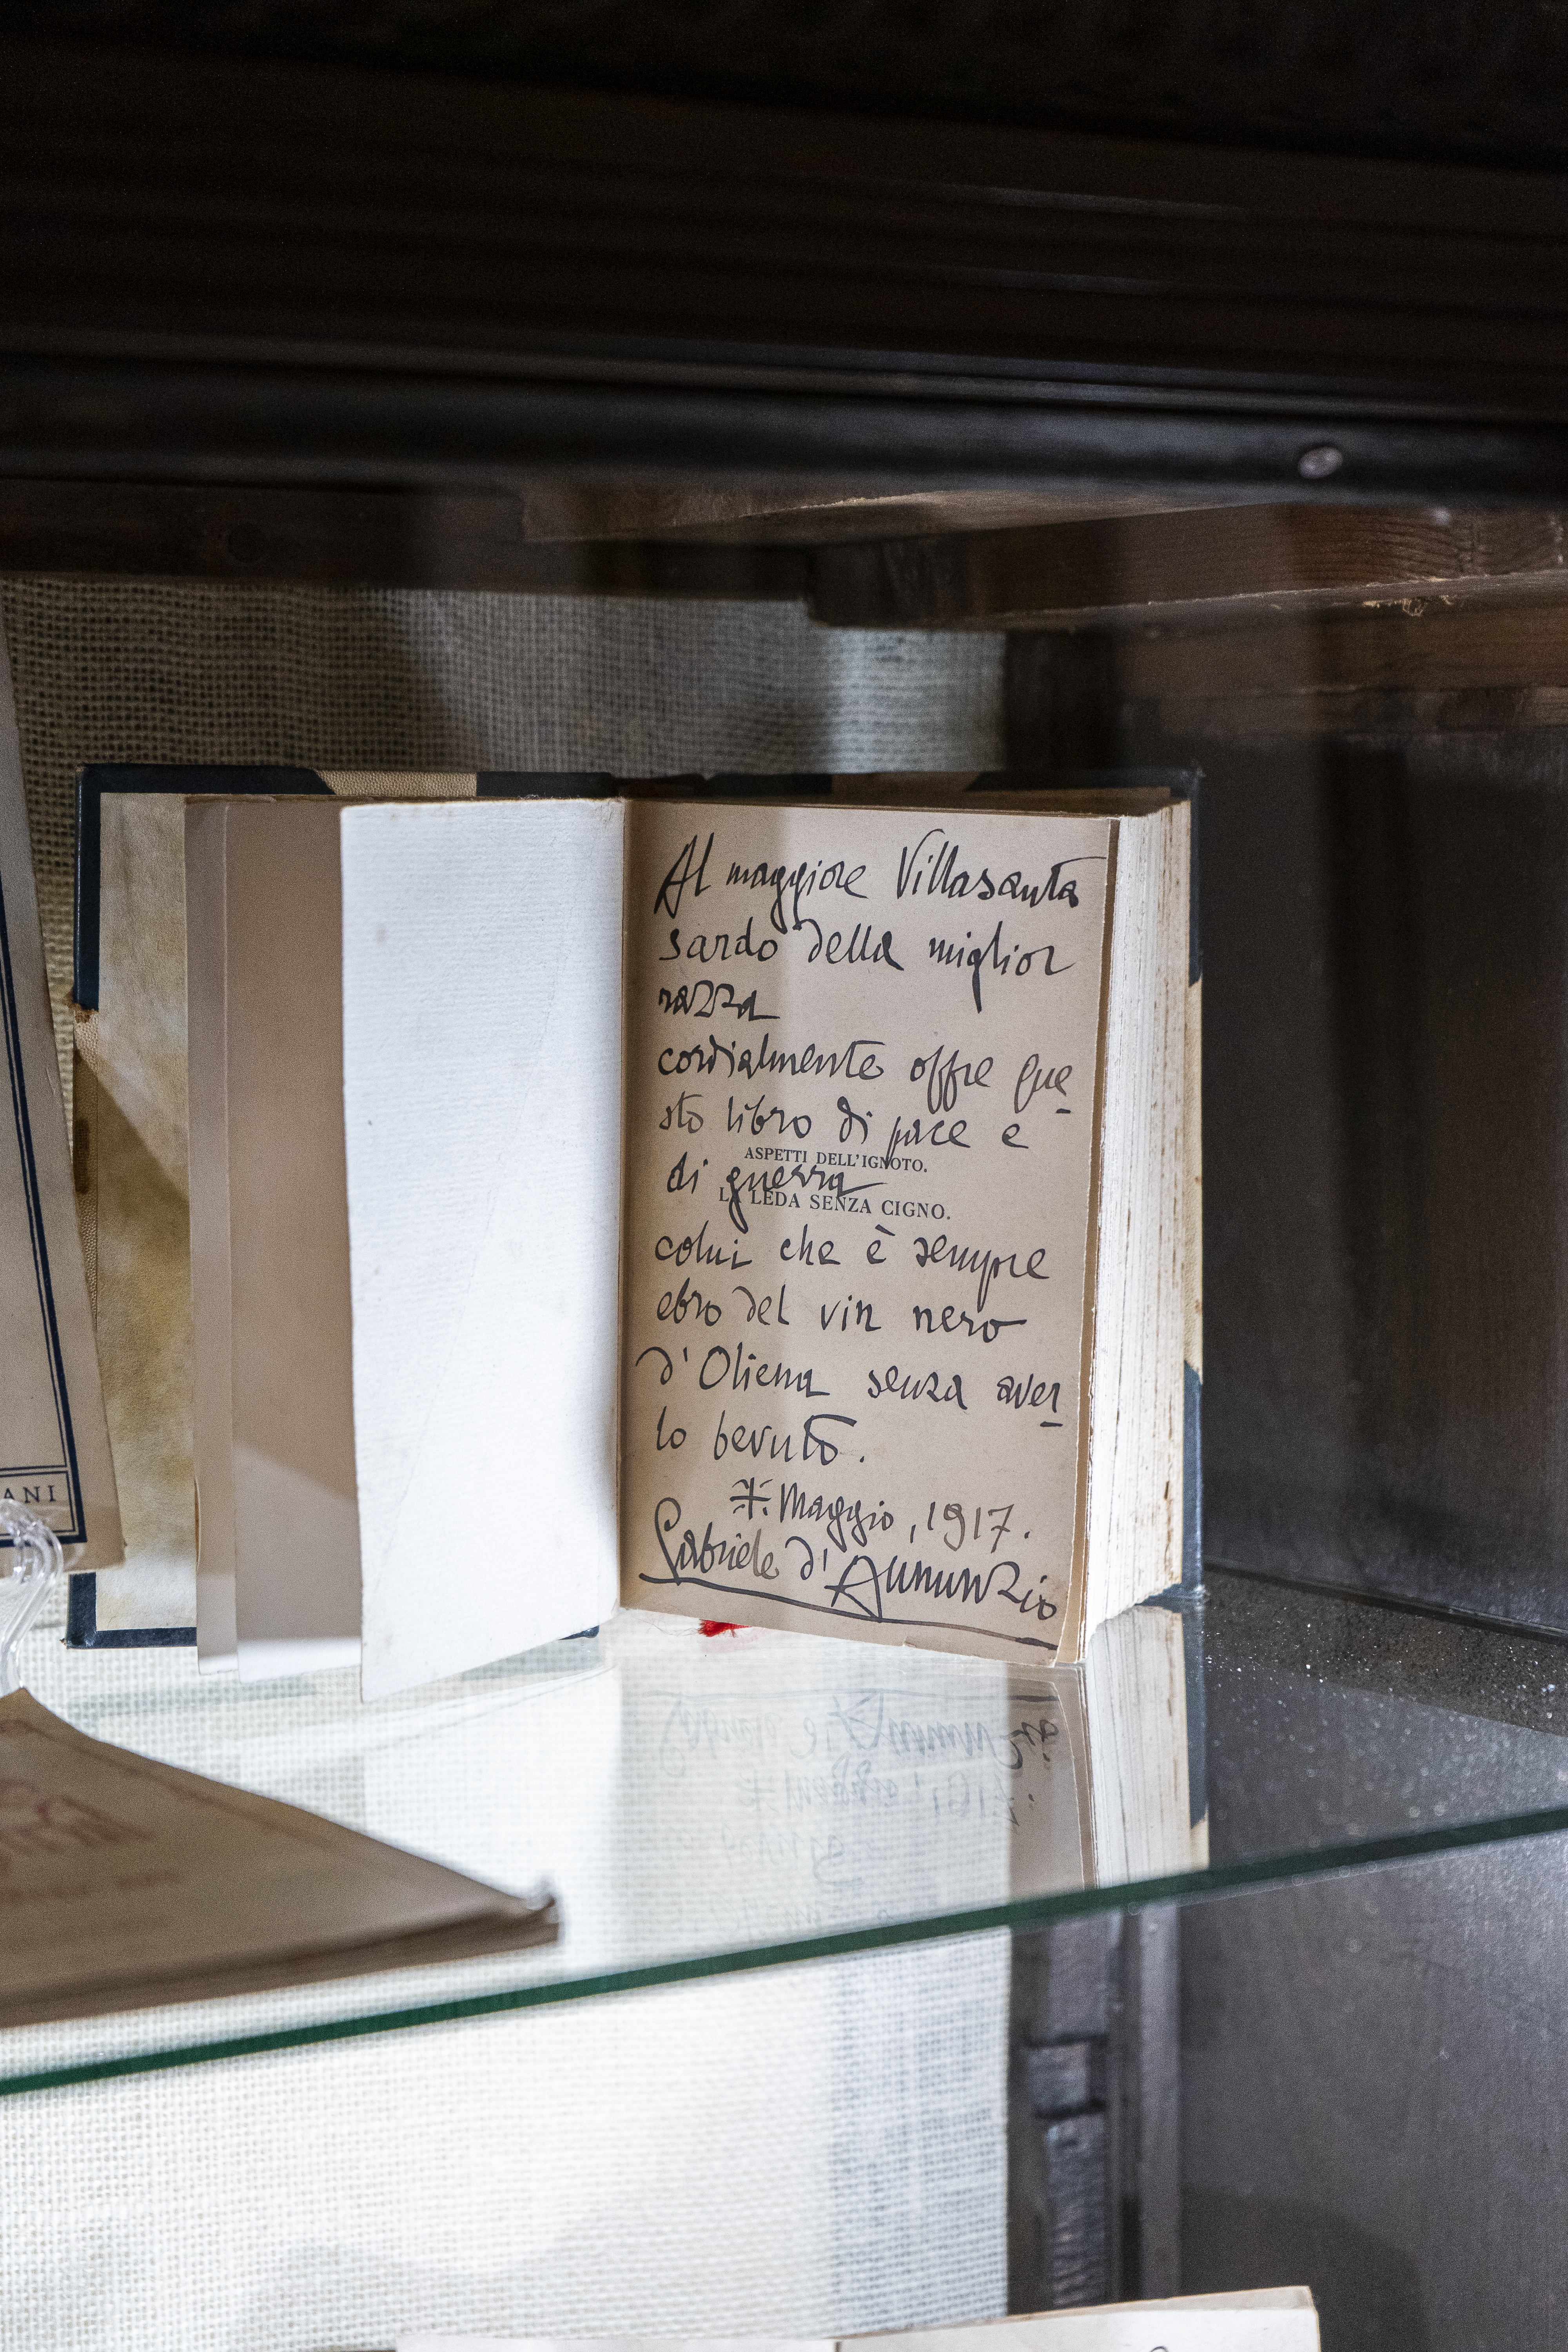 Al maggiore Villasanta
sardo della miglior
razza
cordialmente offre que-
sto libro di pace e
di guerra
ASPETTI DELL'IGNOTO.
LA LEDA SENZA CIGNO.
colui che è sempre
ebro del vin nero
d'Oliena senza aver-
lo bevuto.
Maggio, 1917.
Gabriele d'Annunzio
ANI